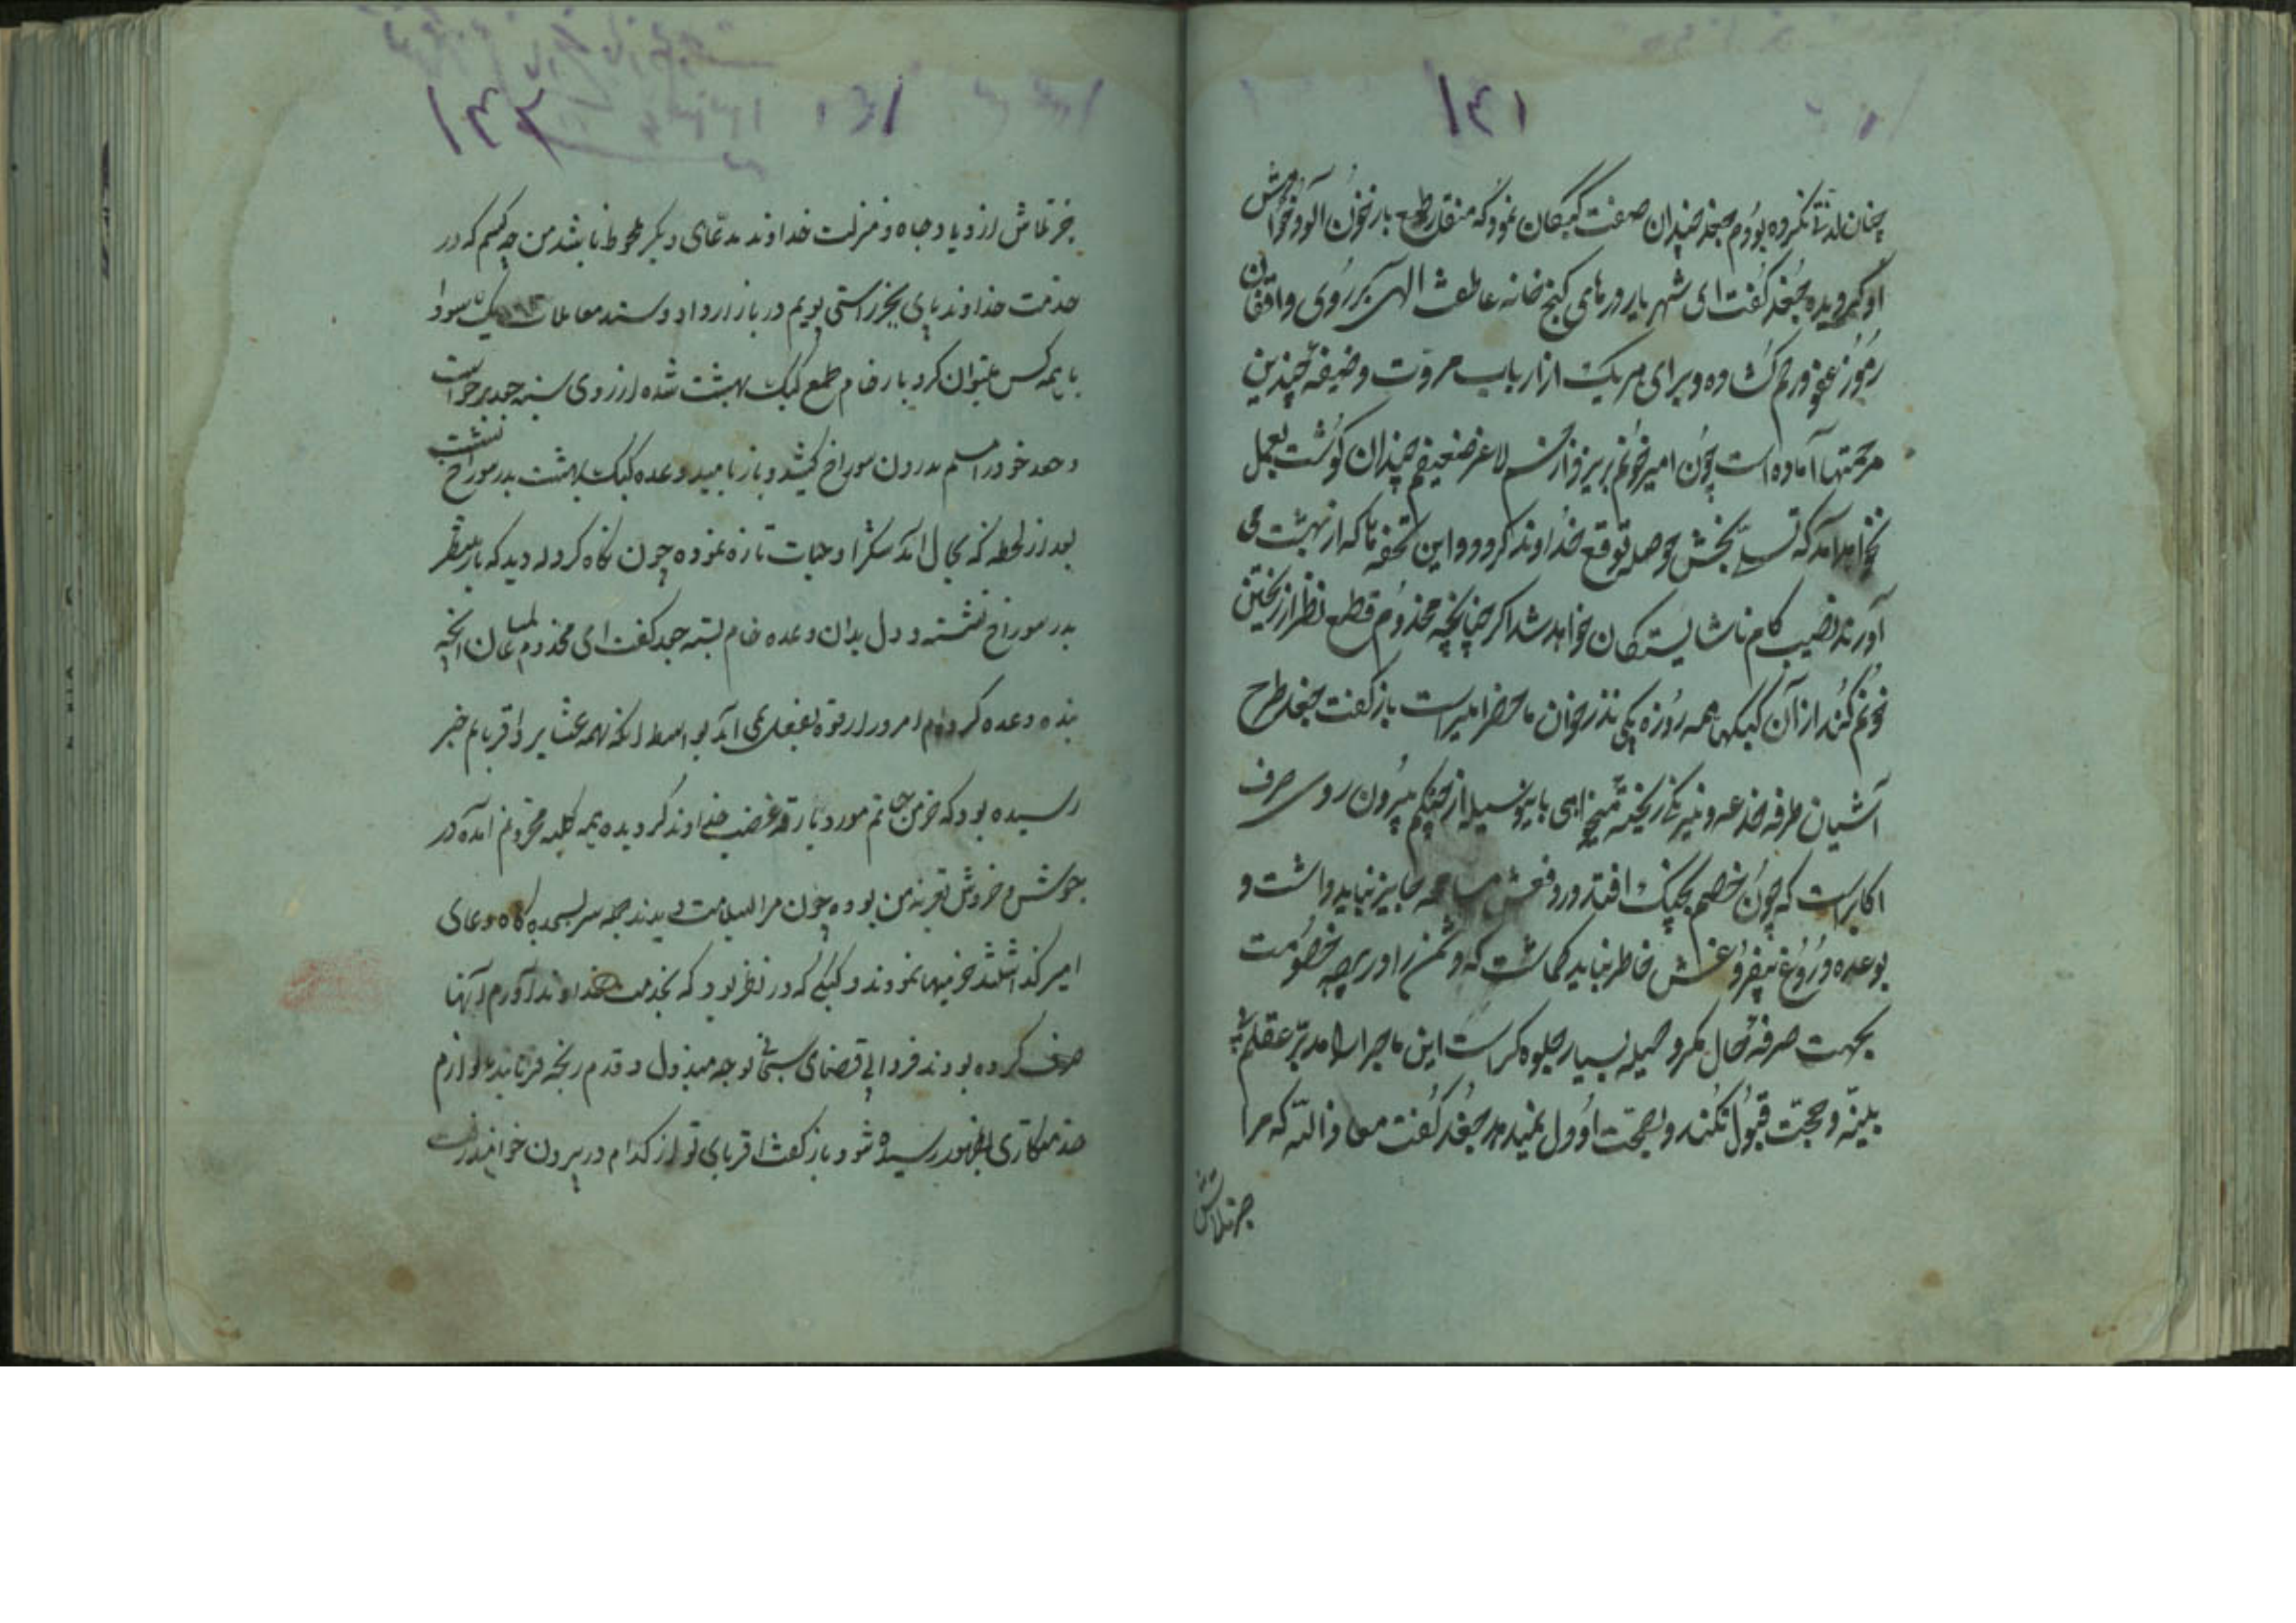 ۱۴۱
چنان لذتی نکرده بودم جغد چندان صفت کبکان نمود که منقار طمع باز نخون آلود خواهش
او گردیده جغد گفت ای شهریار درهای گنج خانه عاطفت الهی بر روی واقفان
رموز عفو و رحم گشاده و برای هر یک از ارباب مروت وضیفه چندین
مرحمتها آماده است چون امیر خونم بریزد از جسم لاغر ضعیفم چندان گوشت بعمل
نخواهد آمد که تسلی بخش حوصله توقع خداوند گردد و این تحفه ها که از بهشت می
آورند نصیب کام ناشایستگان خواهد شد اگر چنانچه مخدوم قطع نظر از ریختن
خونم کند از آن کبکها همه روزه یکی نذر خوان ماحضر امیر است باز گفت جغد طرح
آشیان طرفه خدعه و نیرنگ ریخته میخواهی باین وسیله از چنگم بیرون روی حرف
اکابر است که چون خصم بچنگ افتد در دفعش مسامحه جایز نباید داشت و
بوعده دروغ بیفروغش خاطر نباید گماشت که دشمن را در عرصه خصومت
بجهت صرفه حال مکر و حیله بسیار جلوه گر است این ماجرا را مدبر عقلم بی
بینه و حجت قبول نکند و بصحت او دل نمیدهد جغد گفت معاذ الله که مرا
جز تلاش
۱۴۲
جز تلاش ازدیاد جاه و منزلت خداوند مدعای دیگر ملحوظ باشد من چه کسم که در
خدمت خداوند پای بجز راستی پویم در بازار داد و ستد معاملات یک سودا
با همه کس میتوان کرد باز خام طمع کبک بهشت شده از روی سینه جغد برخواست
و جغد خود را سالم بدرون سوراخ کشید و باز بامید وعده کبک بهشت بدر سوراخ نشست
بعد از لحظه که بحال آمد شکرا و حیات تازه نموده چون نگاه کرد دید که باز منتظر
بدر سوراخ نشسته و دل بدان وعده خام بسته جغد گفت ای مخدوم عالمیان آنچه
بنده وعده کرده ام امروز از قوه بفعل نمی آید بواسطه آنکه بهمه عشایر و اقربایم خبر
رسیده بود که خرمن حیاتم مورد بارقه غضب خداوند گردیده همه بکلبه محزونم آمده در
جوش و خروش تعزیه من بوده چون مرا بسلامت دیدند جمله سر بسجده گاه دعای
امیر گذاشتند خرمیها نمودند و کبکی که در نظر بود که بخدمت خداوند آورم آنها
صرف کرده بودند فردا بی قضای سبحانی توجه مبذول و قدم رنجه فرمایند بلوازم
خدمتکاری بظهور رسیده شود باز گفت اقربای تو از کدام در بیرون خواهند رفت